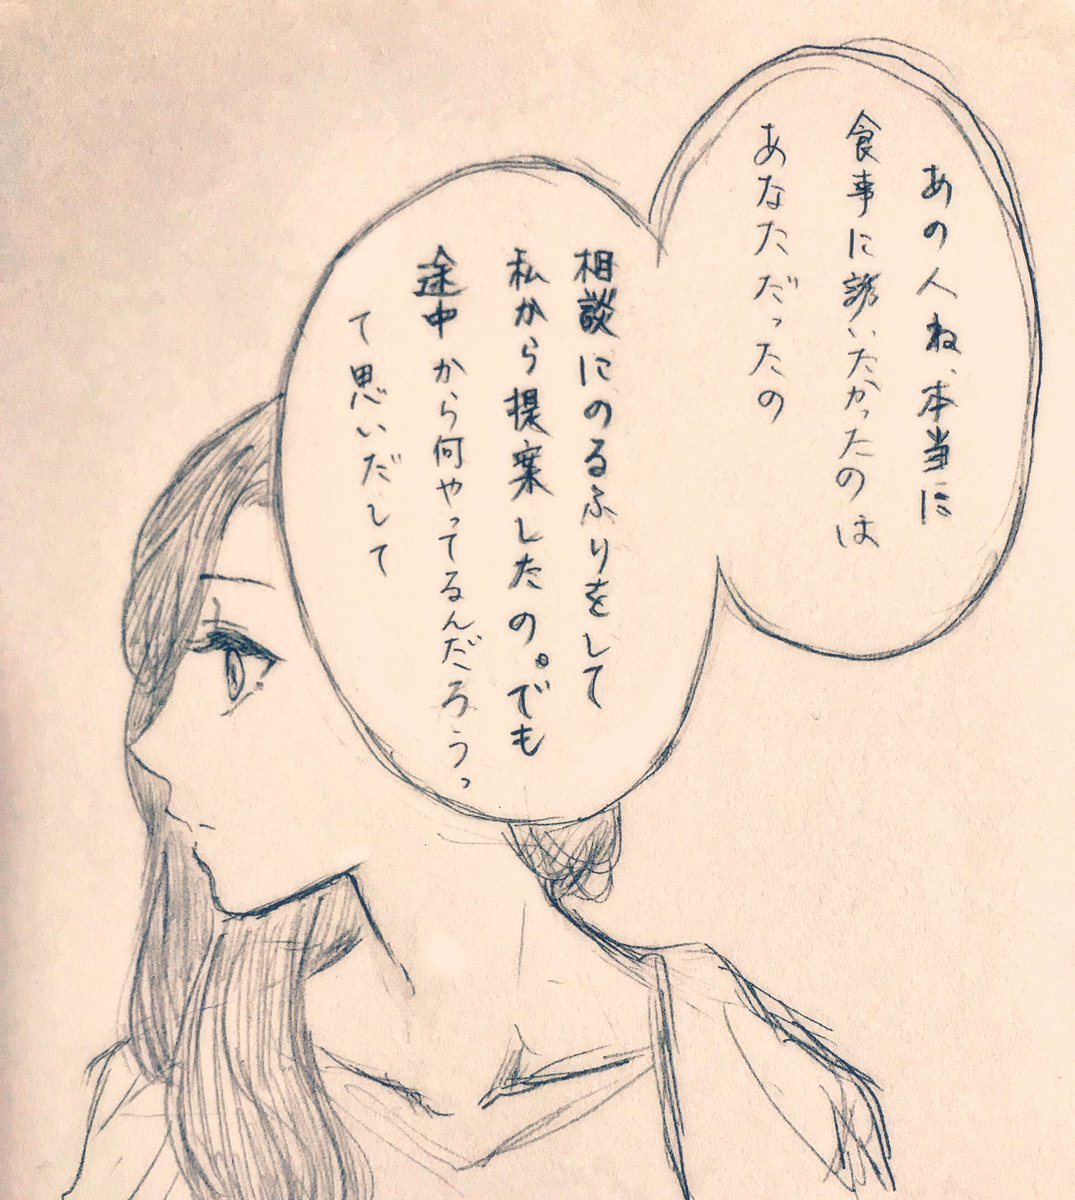 あの人ね、本当に
食事に誘いたかったのは
あなただったの
相談にのるふりをして
私から提案したの。でも
途中から何やってるんだろうっ
て思いだして